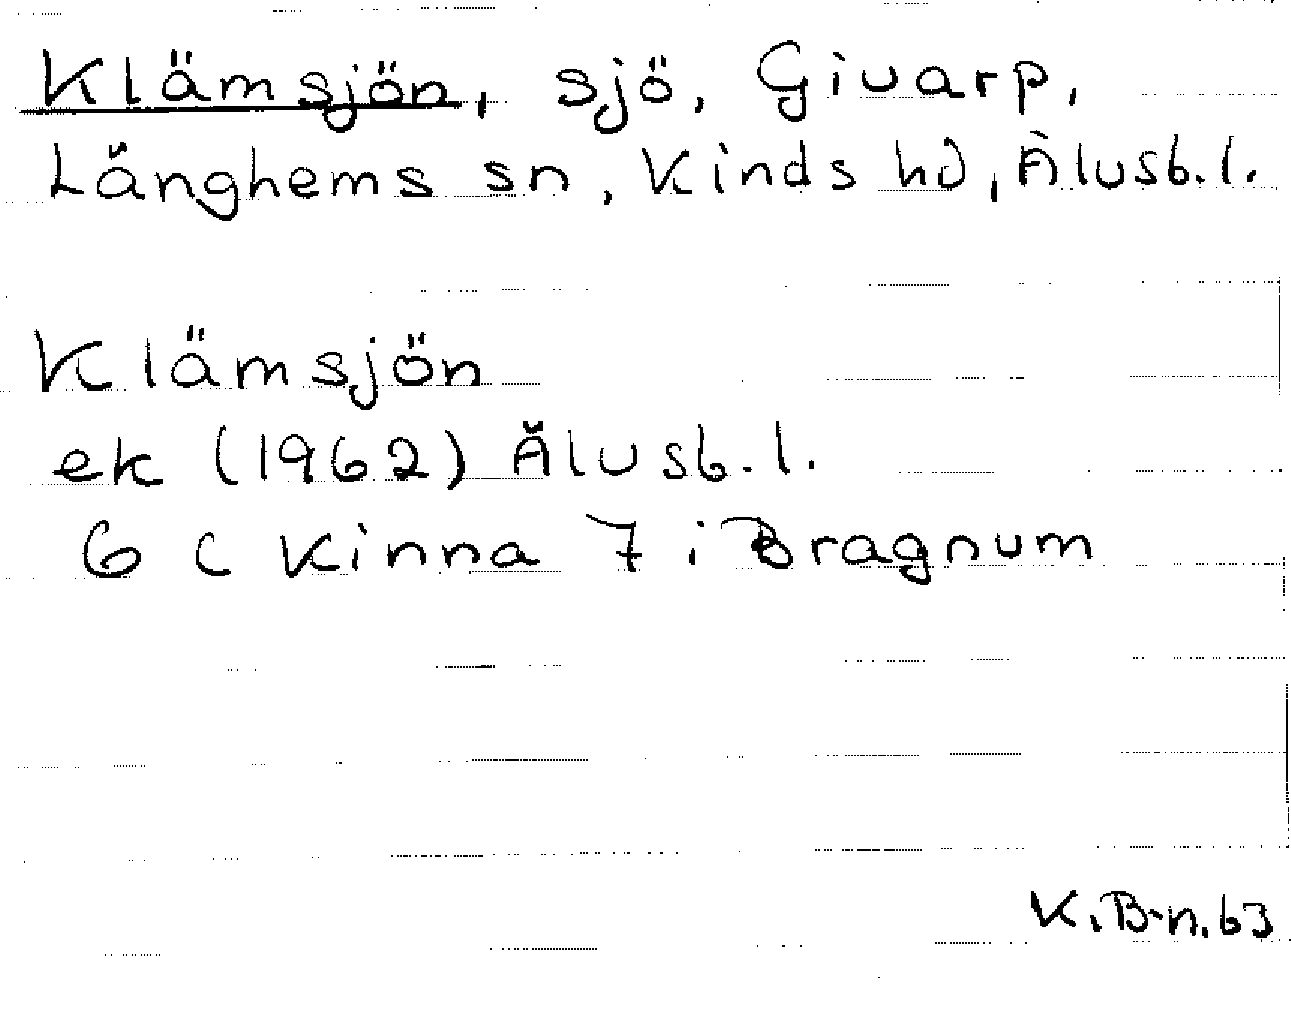 Klämsjön, sjö, Givarp,
Länghems sn, Kinds hd, Älvsb.l.
Klämsjön
ek (1962) Älvsb.l.
6 C Kinna 7 i Bragnum
K.B-n.63